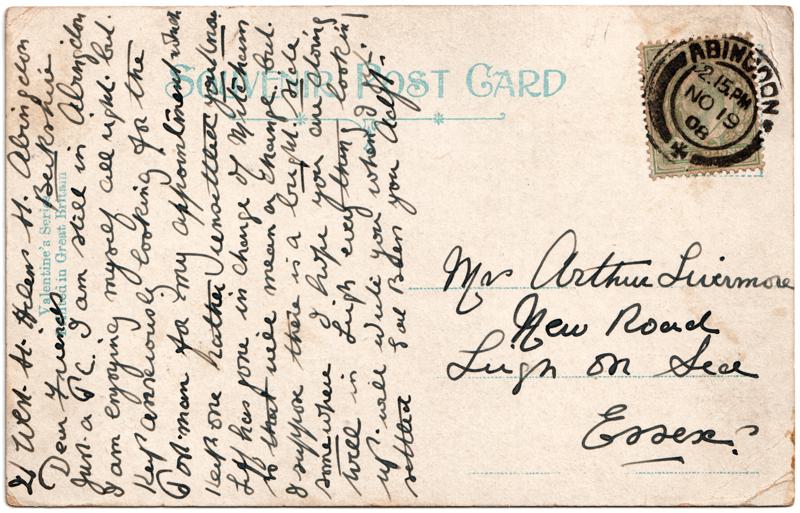 SOUVENIR POST CARD
Valentine's Series
Printed in Great Britain
ABINGDON
2.15 PM
NO 19
08
21 West St. Helens St. Abingdon
Berkshire
Dear Friends
Just a P.C. I am still in Abingdon
I am enjoying myself all right but
Kept anxiously looking for the
Postman for my appointment which
Keeps one rather unsettled you know
has gone in charge of Mitcham
so that will mean a Change, but
I suppose there is a bright side
somewhere I hope you are doing
well in Leigh everything looking
up. will write you when I
settled God Bless you
Mrs Arthur Livermore
New Road
Leigh on Sea
Essex